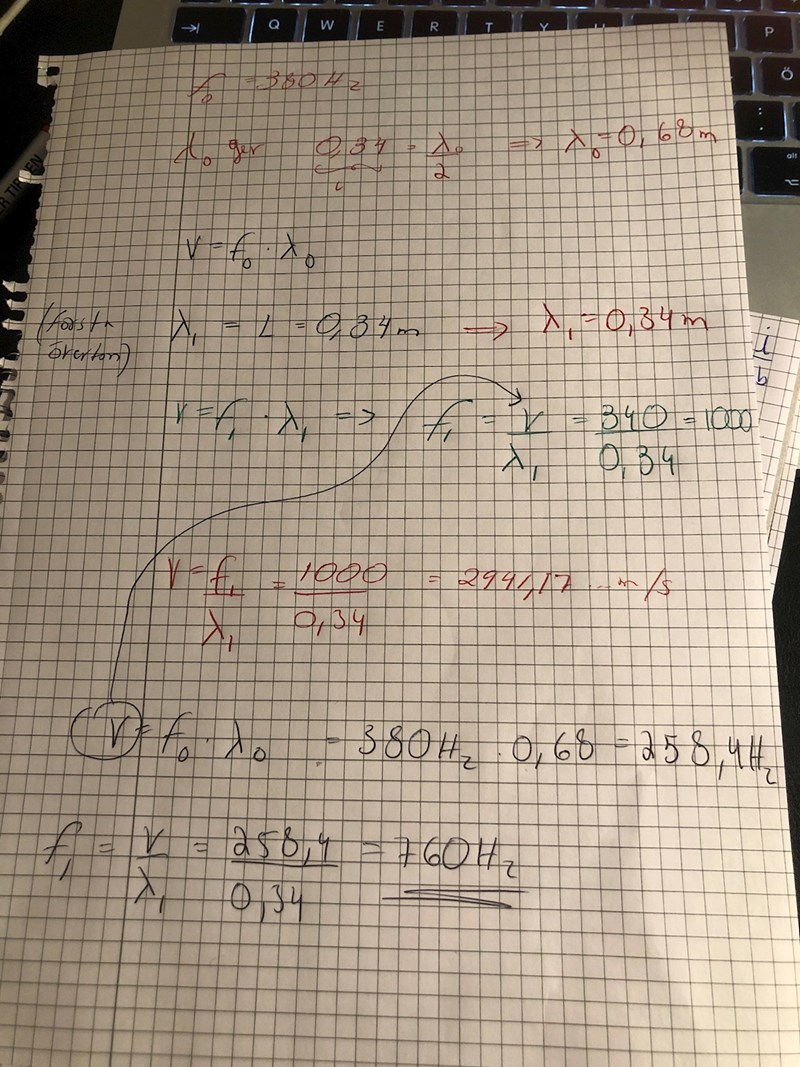 Q W E R T Y
P
Ö
alt
f₀ = 380 Hz
λ₀ ger 0,34 = λ₀/2 => λ₀ = 0,68 m
V = f₀ · λ₀
(första överton) λ₁ = L = 0,34 m => λ₁ = 0,34 m
V = f₁ · λ₁ => f₁ = V/λ₁ = 340/0,34 = 1000
V = f₁/λ₁ = 1000/0,34 = 2941,17... m/s
V = f₀ · λ₀ = 380 Hz · 0,68 = 258,4 Hz
f₁ = V/λ₁ = 258,4/0,34 = 760 Hz